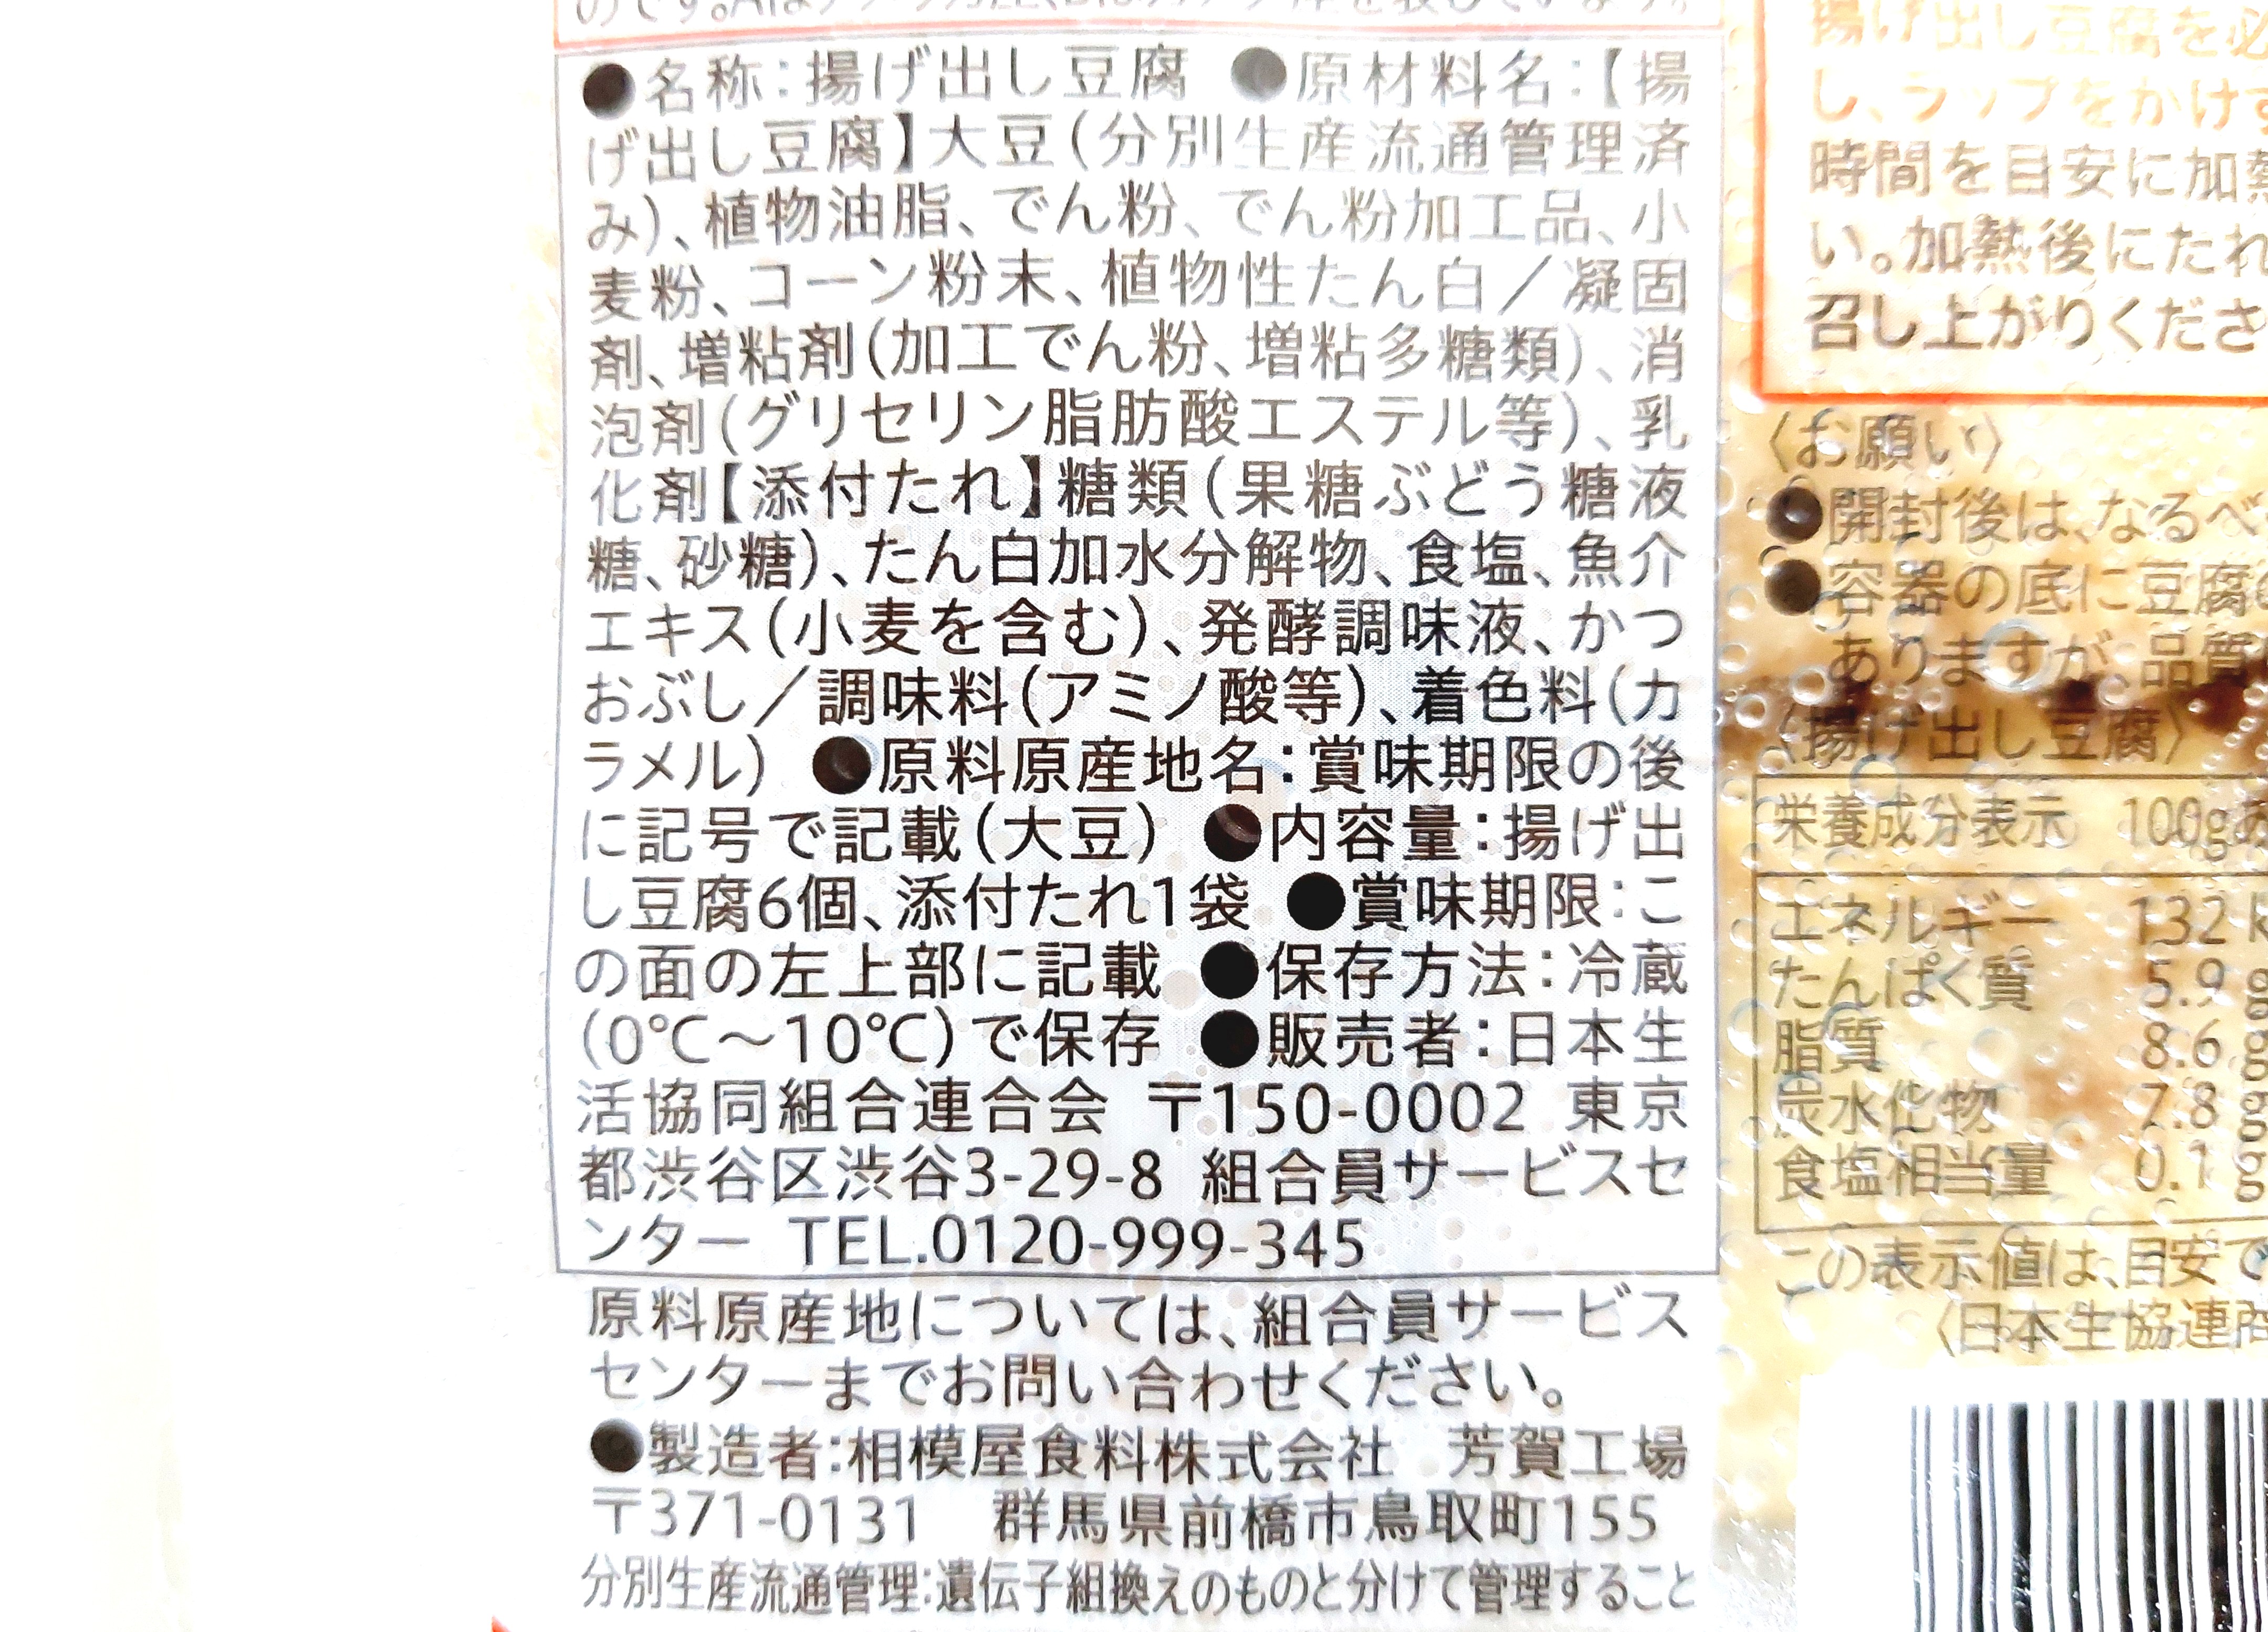 ●名称：揚げ出し豆腐 ●原材料名：【揚
げ出し豆腐】大豆（分別生産流通管理済
み）、植物油脂、でん粉、でん粉加工品、小
麦粉、コーン粉末、植物性たん白／凝固
剤、増粘剤（加工でん粉、増粘多糖類）、消
泡剤（グリセリン脂肪酸エステル等）、乳
化剤【添付たれ】糖類（果糖ぶどう糖液
糖、砂糖）、たん白加水分解物、食塩、魚介
エキス（小麦を含む）、発酵調味液、かつ
おぶし／調味料（アミノ酸等）、着色料（カ
ラメル） ●原料原産地名：賞味期限の後
に記号で記載（大豆） ●内容量：揚げ出
し豆腐6個、添付たれ1袋 ●賞味期限：こ
の面の左上部に記載 ●保存方法：冷蔵
（0℃～10℃）で保存 ●販売者：日本生
活協同組合連合会 〒150-0002 東京
都渋谷区渋谷3-29-8 組合員サービスセ
ンター TEL.0120-999-345
原料原産地については、組合員サービス
センターまでお問い合わせください。
●製造者：相模屋食料株式会社 芳賀工場
〒371-0131 群馬県前橋市鳥取町155
分別生産流通管理：遺伝子組換えのものと分けて管理すること
揚げ出し豆腐を必
し、ラップをかけ
時間を目安に加熱
い。加熱後にたれ
召し上がりくださ
〈お願い〉
●開封後は、なるべ
●容器の底に豆腐
ありますが、品質
〈揚げ出し豆腐〉
栄養成分表示 100g
エネルギー 132 k
たんぱく質 5.9 g
脂質 8.6 g
炭水化物 7.8 g
食塩相当量 0.1 g
この表示値は、目安で
〈日本生協連商